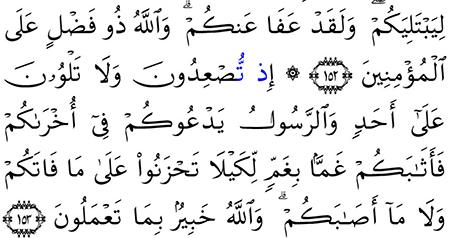 لِيَبْتَلِيَكُمْ ۖ وَلَقَدْ عَفَا عَنكُمْ ۗ وَٱللَّهُ ذُو فَضْلٍ عَلَى
ٱلْمُؤْمِنِينَ ﴿١٥٢﴾ ۞ إِذ تُّصْعِدُونَ وَلَا تَلْوُۥنَ
عَلَىٰٓ أَحَدٍ وَٱلرَّسُولُ يَدْعُوكُمْ فِىٓ أُخْرَىٰكُمْ
فَأَثَـٰبَكُمْ غَمًّۢا بِغَمٍّ لِّكَيْلَا تَحْزَنُوا۟ عَلَىٰ مَا فَاتَكُمْ
وَلَا مَآ أَصَـٰبَكُمْ ۗ وَٱللَّهُ خَبِيرٌۢ بِمَا تَعْمَلُونَ ﴿١٥٣﴾